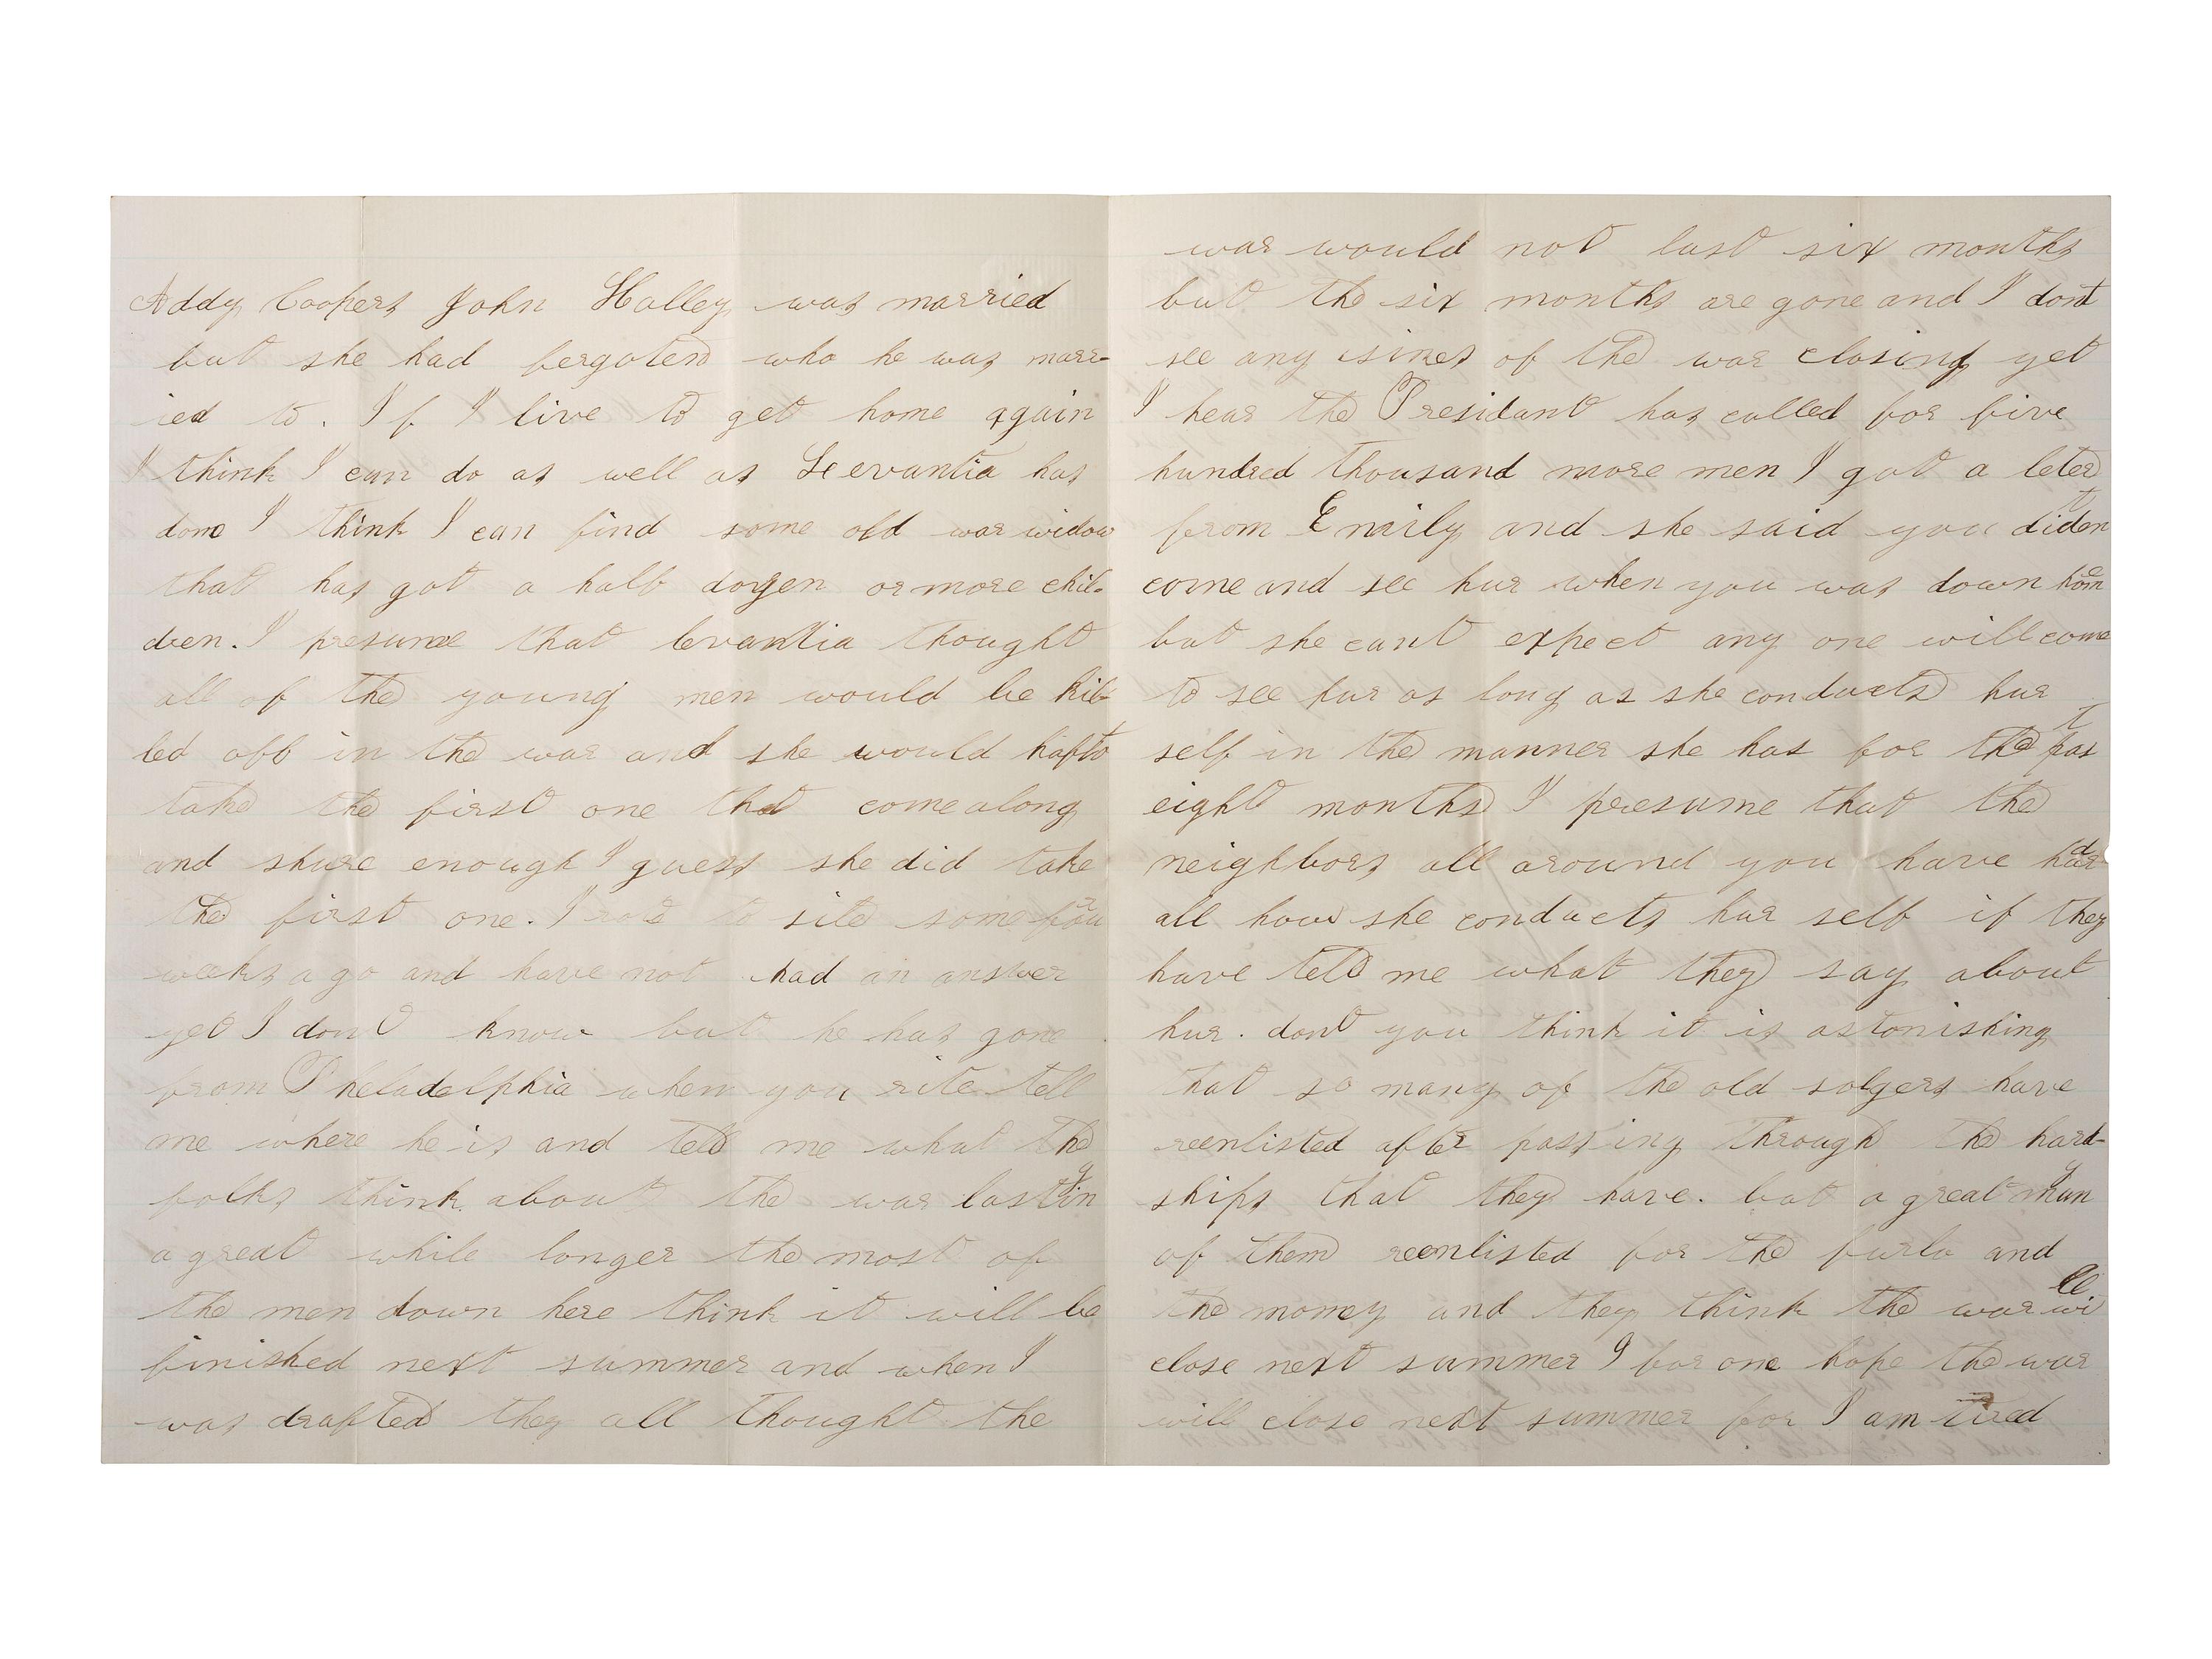 Addy Coopers John Holley was married
but she had fergoten who he was marr-
ied to. If I live to get home again
I think I can do as well as Levantia has
done I think I can find some old war widow
that has got a half dozen or more chil-
dren. I presume that levantia thought
all of the young men would be kil-
led off in the war and she would hafto
take the first one that come along
and shure enough I guess she did take
the first one. I rote to site some four
weeks a go and have not had an answer
yet I dont know but he has gone
from Pheladelphia when you rite tell
me where he is and tell me what the
folks think about the war lasting
a great while longer the most of
the men down here think it will be
finished next summer and when I
was drafted they all thought the
war would not last six months
but the six months are gone and I dont
see any sines of the war closing yet
I hear the Presidant has called for five
hundred thousand more men I got a leter
from Emily and she said you dident
come and see hur when you was down home
but she cant expect any one will come
to see hur as long as she conducts hur
self in the manner she has for the past
eight months I presume that the
neighbors all around you have hard
all how she conducts hur self if they
have tell me what they say about
hur. dont you think it is astonishing
that so many of the old solgers have
reenlisted after passing through the hard-
ships that they have. but a great many
of them reenlisted for the furlo and
the money and they think the war will
close next summer I for one hope the war
will close next summer for I am tired